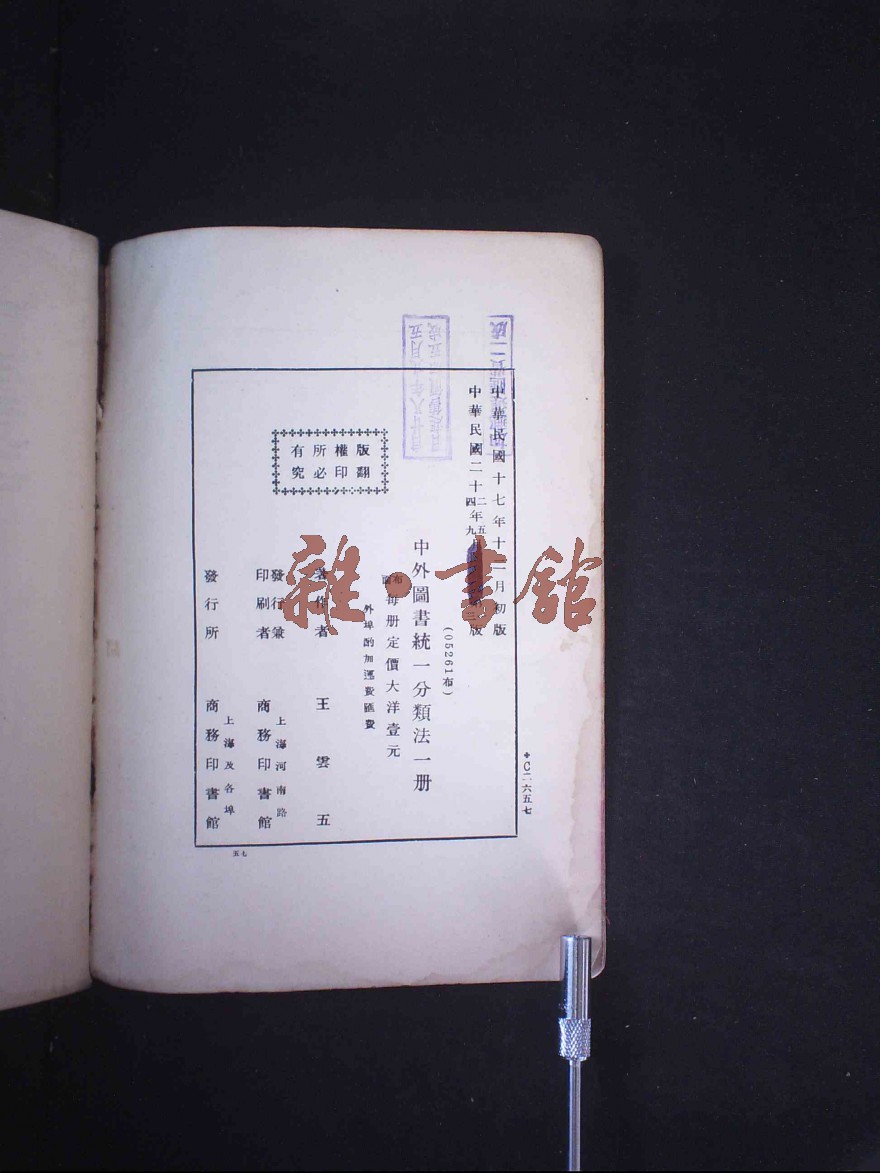 中華民國十七年十一月初版
中華民國二十四年九月
(05261布)
中外圖書統一分類法一册
布面
每册定價大洋壹元
外埠酌加運費匯費
著作者 王雲五
發行兼
印刷者
上海河南路
商務印書館
發行所
上海及各埠
商務印書館
版權所有
翻印必究
C二六五七
五七
雜·書館